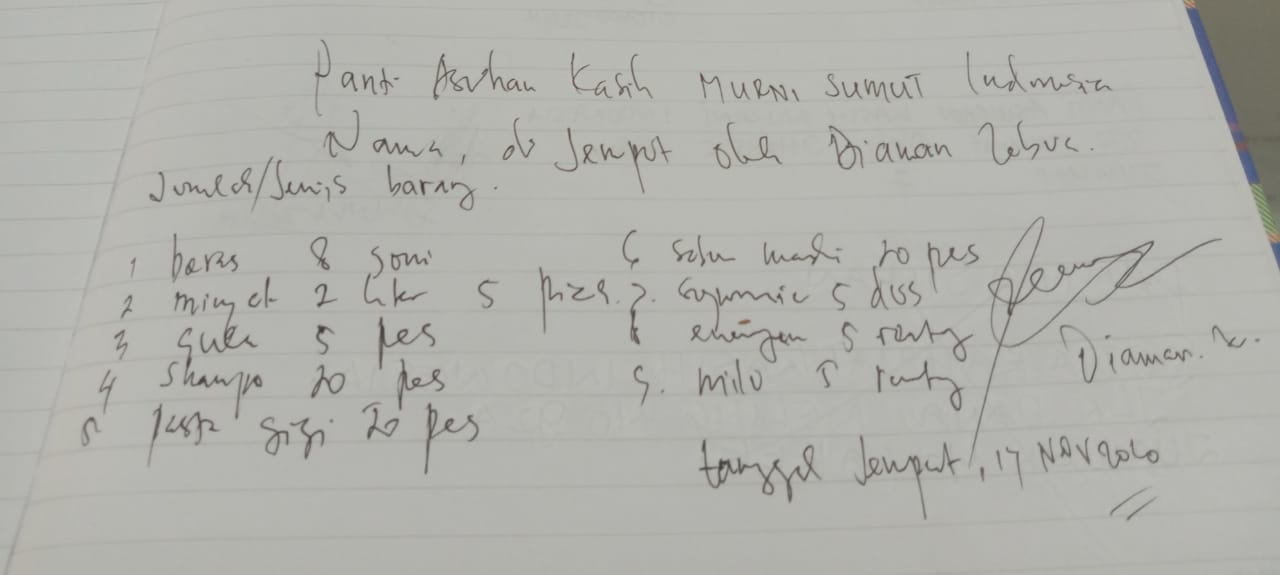 Panti Asuhan Kasih MURNI SUMUT Indonesia
Nama, di Jemput oleh Diaman Zebua.
Jumlah/Jenis barang.
1 beras 8 goni
2 minyak 2 liter 5 pics.
3 gula 5 pcs
4 Shampo 20 pcs
5 pasta gigi 20 pcs
6 sabun mandi 20 pcs
7. 5 dus
8 energen 5 renty
9. milo 5 renty
Diaman. Z.
tanggal Jemput, 17 NOV 2020